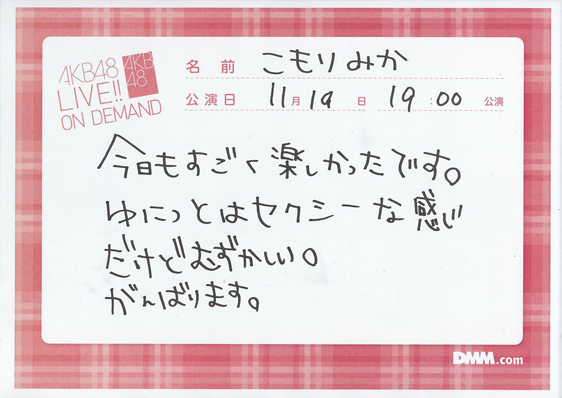 AKB48
LIVE!!
ON DEMAND
AKB
48
名前 こもりみか
公演日 11月19日 19:00 公演
今日もすごく楽しかったです。
ゆにっとはセクシーな感じ
だけどむずかしい。
がんばります。
DMM.com